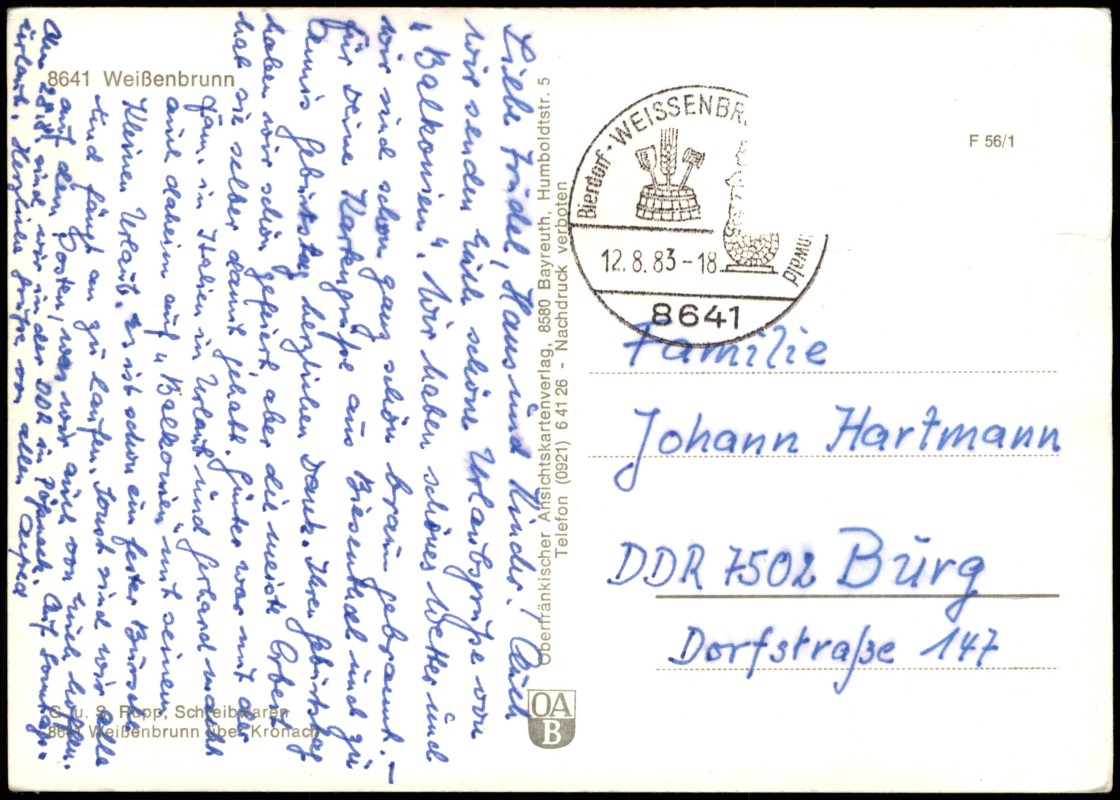 8641 Weißenbrunn
Liebe Friedel, Hans und Kinder! Auch
wir senden Euch schöne Urlaubsgrüße von
"Balkonien". Wir haben schönes Wetter und
wir sind schon ganz schön braun gebrannt. –
für Deine Kartengrüße aus Biesenthal und zu
Annis Geburtstag herzlichen Dank. Ihren Geburtstag
haben wir schön gefeiert, aber die meiste Arbeit
hat sie selber damit gehabt. Günter war mit der
Fam. in Italien in Urlaub und Gerhard macht
auch daheim auf "Balkonien" mit seinem
Kleinen Urlaub. Er ist schon ein fester Bursche
und fängt an zu laufen. Sonst sind wir alle
auf dem Posten, was wir auch von Euch hoffen.
Am 28.8. sind wir in der DDR in Pößneck. Auf Sonntags-
urlaub. Herzliche Grüße von allen Alfred
G. u. S. Rupp, Schreibwaren
8641 Weißenbrunn über Kronach
Oberfränkischer Ansichtskartenverlag, 8580 Bayreuth, Humboldtstr. 5
Telefon (0921) 6 41 26 - Nachdruck verboten
OA
B
Bierdorf - WEISSENBR
12.8.83-18
8641
F 56/1
Familie
Johann Hartmann
DDR 7502 Burg
Dorfstraße 147